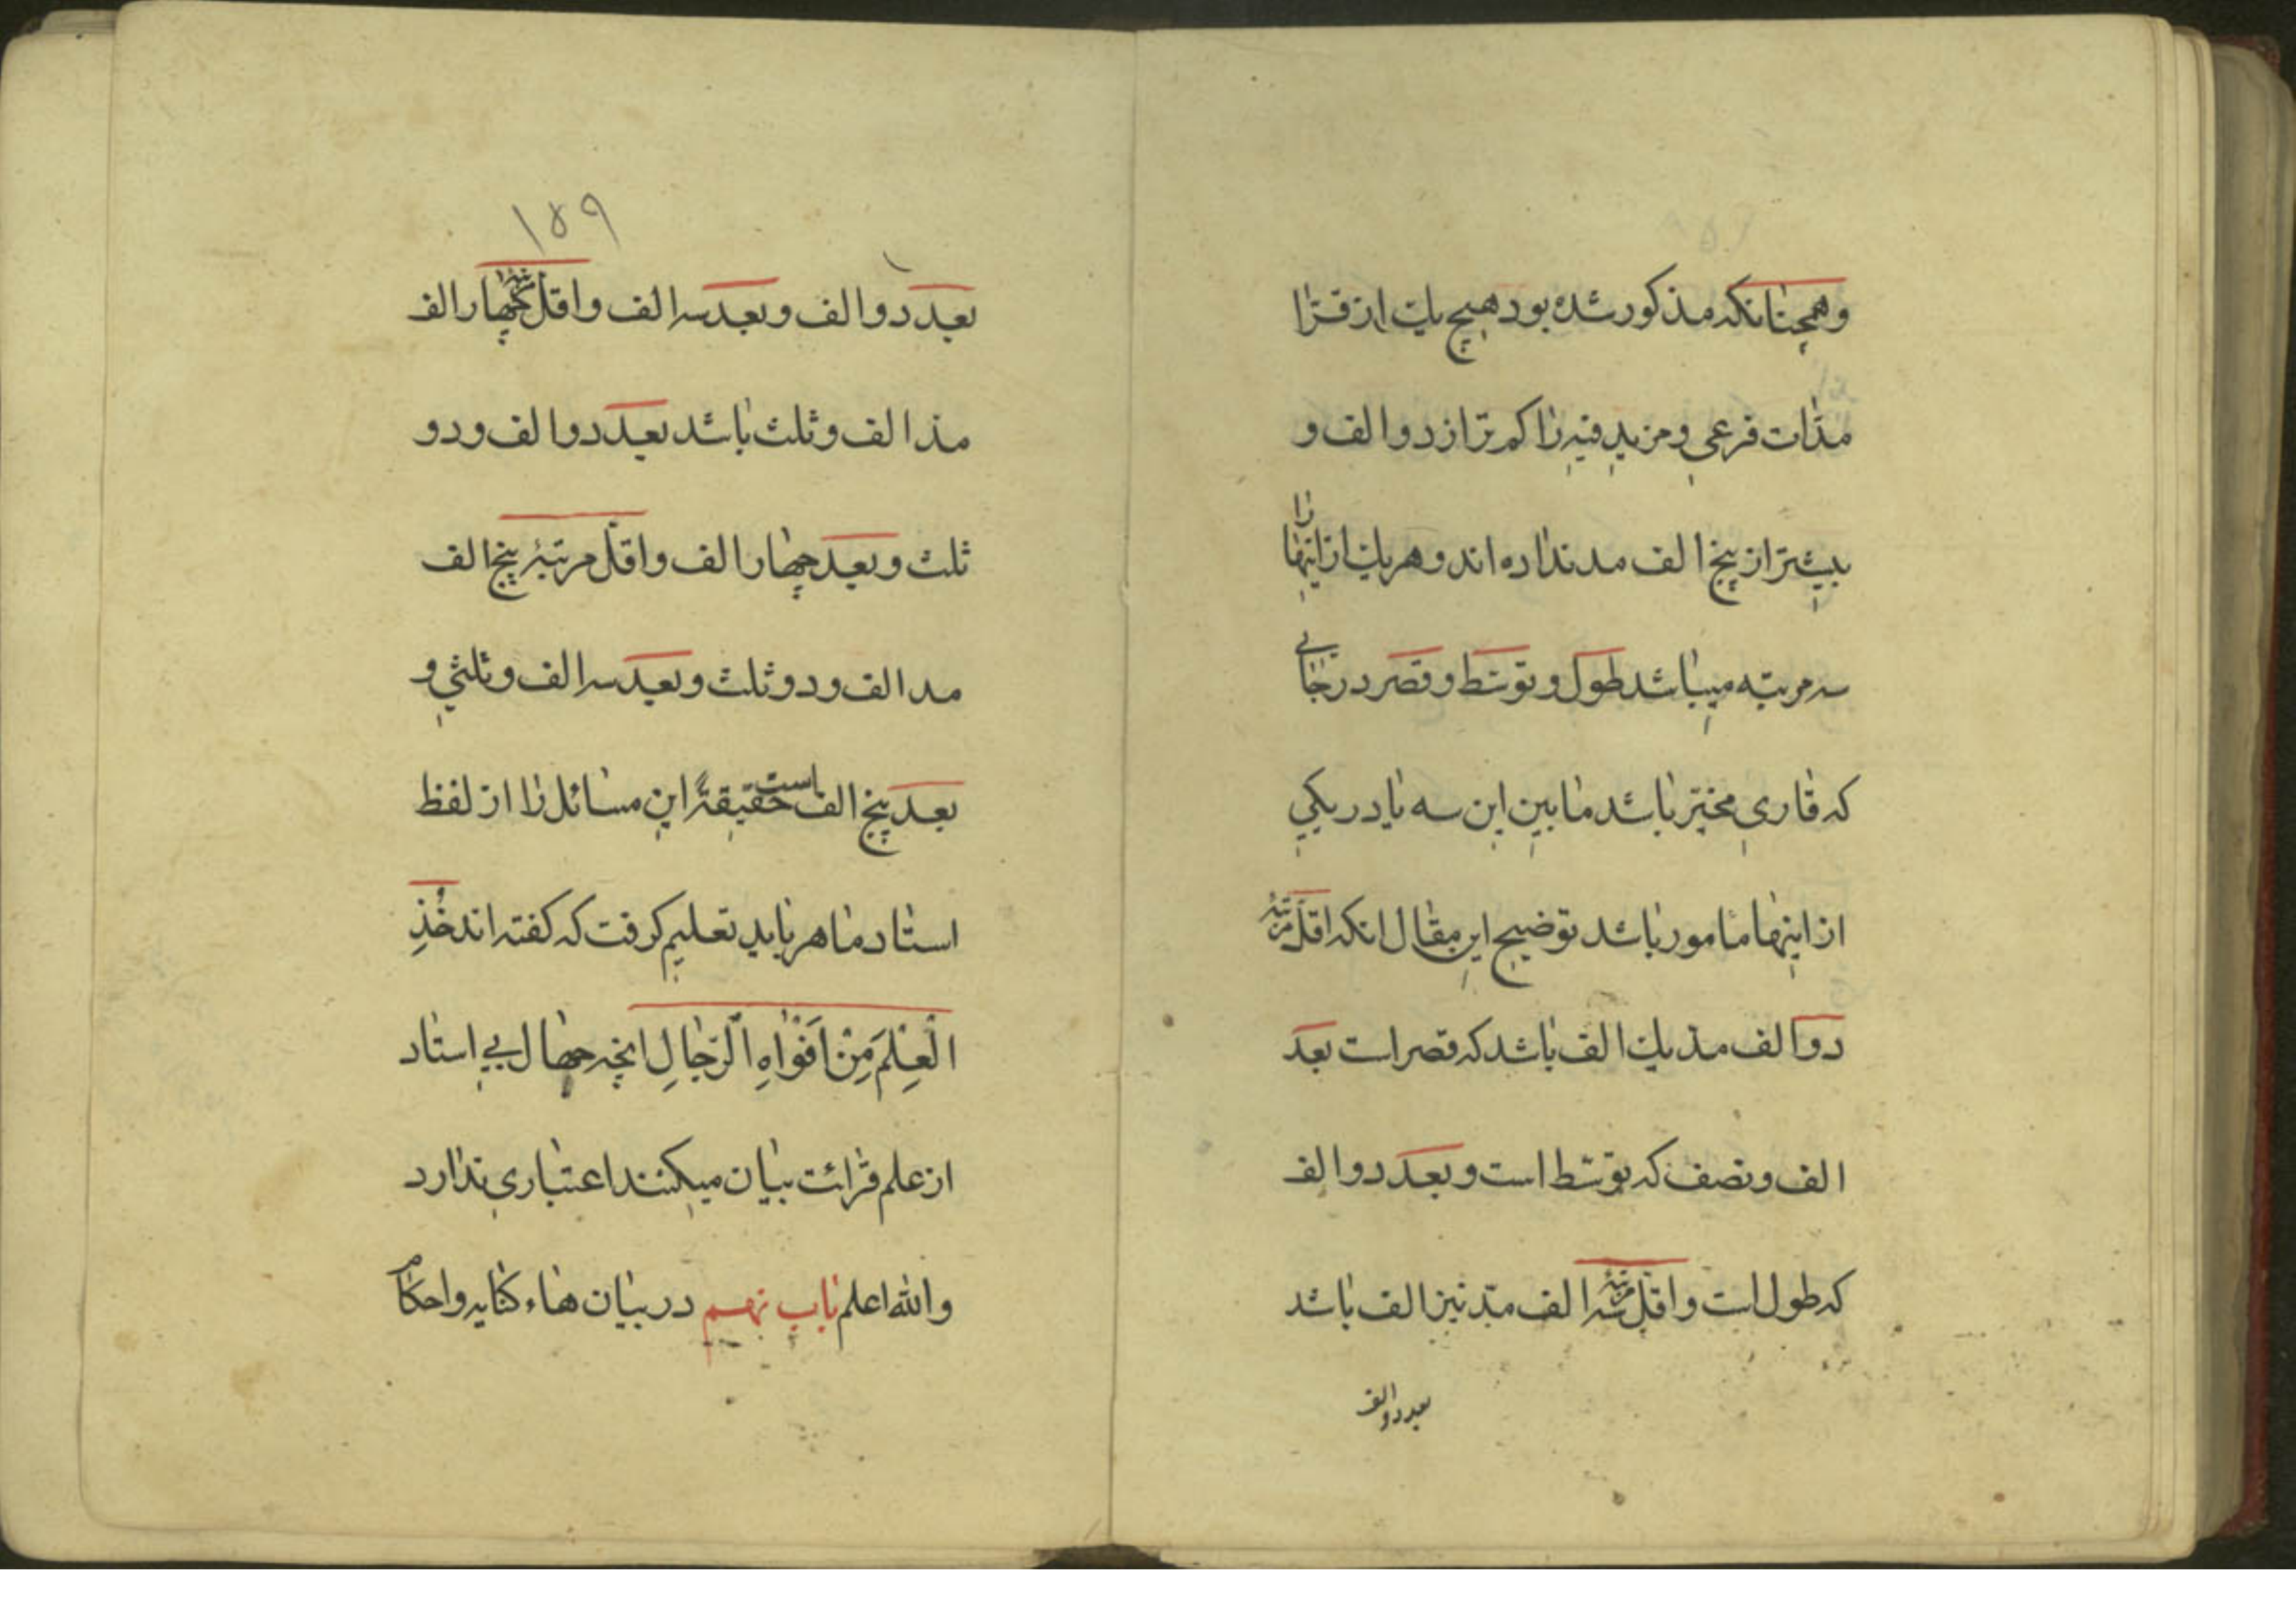 وهمچنانکه مذکور شده بود هیچ یك از قرا
مدّات فرعی و مزید فیه را کم تر از دو الف و
بیشتر از پنج الف مد نداده اند و هر یك از اینها را
سه مرتبه میباشد طول و توسّط و قصر در جائی
که قاری مخیّر باشد ما بین این سه یا در یکی
از اینها مامور باشد توضیح این مقال انکه اقلّ مرتبهٔ
دو الف مدّ یك الف باشد که قصر است بعد
الف و نصف که توسّط است و بعد دو الف
که طول است و اقلّ مرتبهٔ سه الف مدّ نیز الف باشد
بعد دو الف
۱۵۹
بعد دو الف و بعد سه الف و اقلّ مرتبهٔ چهار الف
مد الف و ثلث باشد بعد دو الف و دو
ثلث و بعد چهار الف و اقلّ مرتبهٔ پنج الف
مد الف و دو ثلث و بعد سه الف و ثلثی و
بعد پنج الف است حقیقةً این مسائل را از لفظ
استاد ماهر باید تعلیم کرفت که کفته اند خُذِ
الْعِلْمَ مِنْ اَفْوٰاهِ الرِّجٰالِ انچه جهال بی استاد
از علم قرائت بیان میکنند اعتباری ندارد
والله اعلم باب نهم در بیان هاء کنایه و احکام